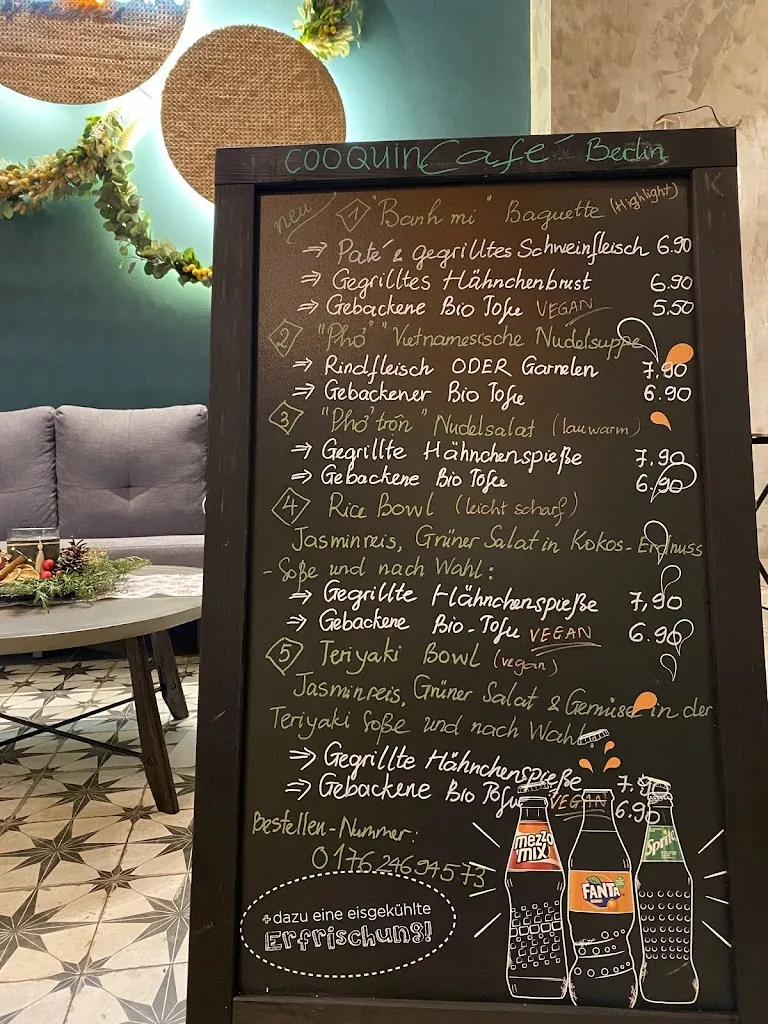 COOQUIN Café Berlin
neu 1 "Banh mi" Baguette (Highlight)
⇒ Paté & gegrilltes Schweinfleisch 6.90
⇒ Gegrilltes Hähnchenbrust 6.90
⇒ Gebackene Bio Tofu VEGAN 5.50
2 "Phở" Vietnamesische Nudelsuppe
⇒ Rindfleisch ODER Garnelen 7.90
⇒ Gebackener Bio Tofu 6.90
3 "Phở trộn" Nudelsalat (lauwarm)
⇒ Gegrillte Hähnchenspieße 7.90
⇒ Gebackene Bio Tofu 6.90
4 Rice Bowl (leicht scharf)
Jasminreis, Grüner Salat in Kokos-Erdnuss
-Soße und nach Wahl:
⇒ Gegrillte Hähnchenspieße 7,90
⇒ Gebackene Bio-Tofu VEGAN 6.90
5 Teriyaki Bowl (vegan)
Jasminreis, Grüner Salat & Gemüse in der
Teriyaki Soße und nach Wahl
⇒ Gegrillte Hähnchenspieße
⇒ Gebackene Bio Tofu VEGAN 6.90
Bestellen-Nummer:
0176 24694573
+dazu eine eisgekühlte
Erfrischung!
mezzo mix
FANTA
Sprite